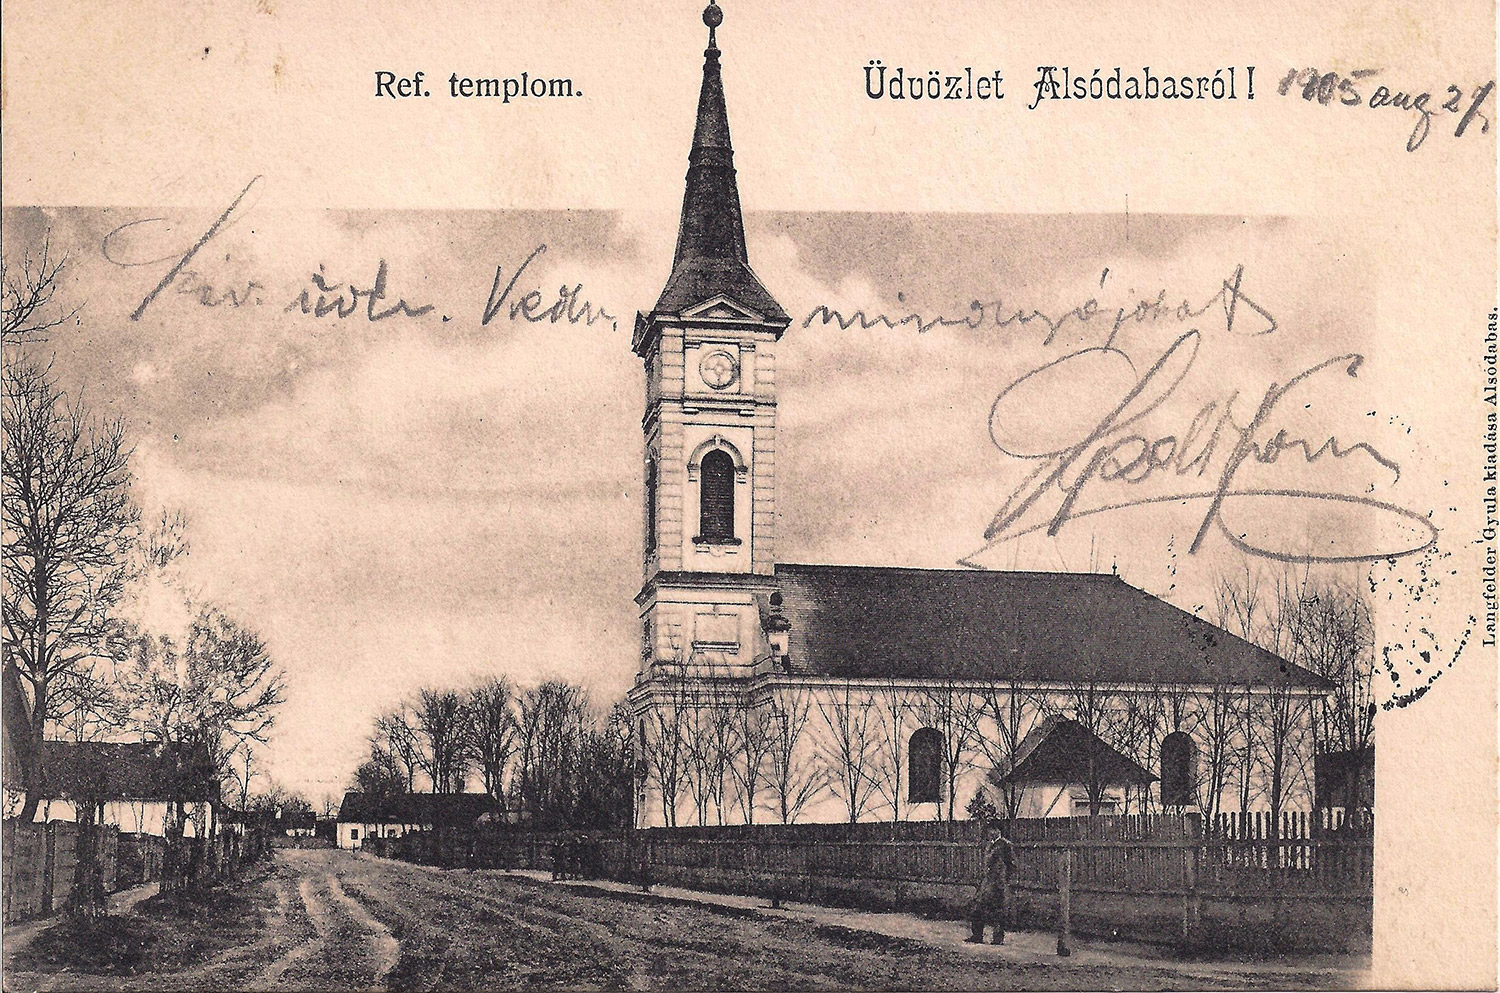 Ref. templom.
Üdvözlet Alsódabasról!
1905 aug 27
Sziv. üdv. Kedv. mindnyájokat
Langfelder Gyula kiadása Alsódabas.